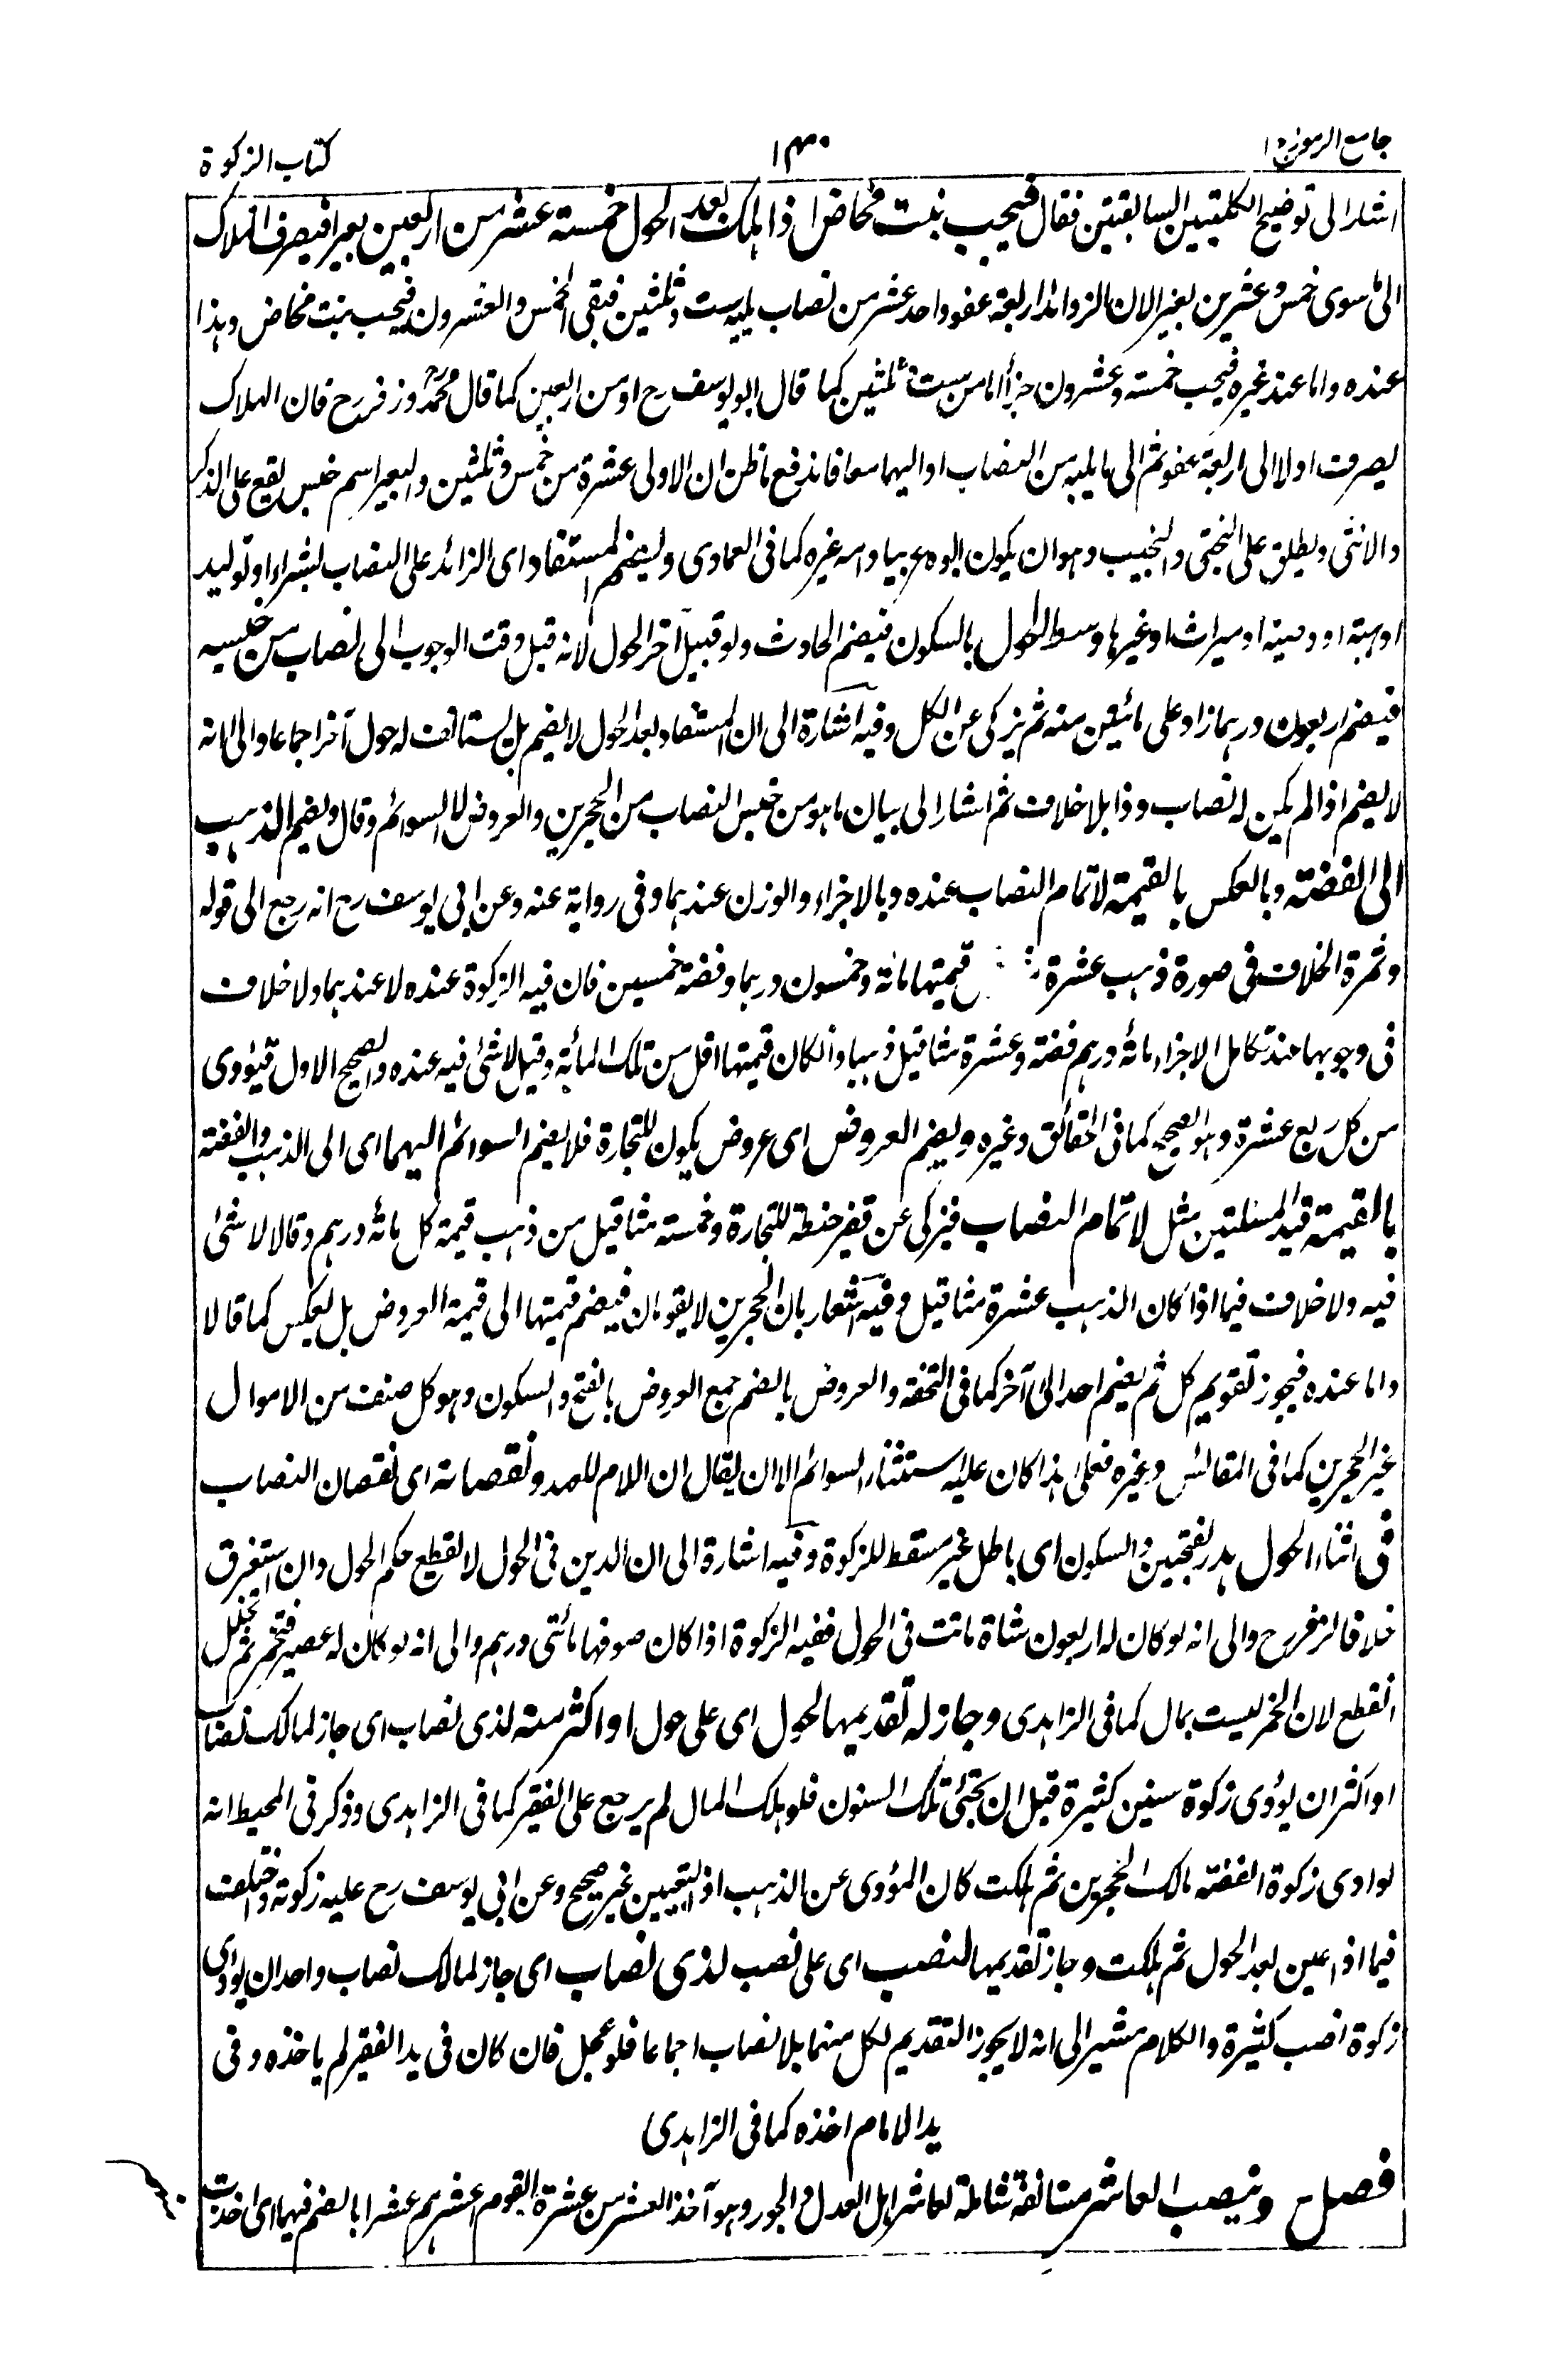 جامع الرموز ج ١
١٣٠
كتاب الزكوة
اشار الى توضيح الكليتين السابقتين فقال فيجب بنت مخاض اذا هلك بعد الحول خمسة عشر من اربعين بعيرا فيصرف الهلاك
الى ما سوى خمس وعشرين بعيرا لان الزوائد اربعة عفو واحد عشر من نصاب يليه ست وثلثين فبقى الخمس والعشرون فيجب بنت مخاض وهذا
عنده واما عند غيره فيجب خمسة وعشرون جزأ اما من ست وثلثين كما قال ابو يوسف رح او من اربعين كما قال محمد وزفر رح فان الهلاك
يصرف اولا الى اربعة عفو ثم الى ما يليه من النصاب او اليهما معا فاندفع ما ظن ان الاولى عشرة من خمس وثلثين والبعير اسم جنس يقع على الذكر
والانثى ويطلق على البختى والنجيب وهو ان يكون ابوه عربيا وامه غيره كما فى العمادى ويضم المستفاد اى الزائد على النصاب بشراء او توليد
او هبة او وصية او ميراث او غيرها وسط الحول بالسكون فيضم الحادث ولو قبيل آخر الحول لانه قبل وقت الوجوب الى نصاب من جنسه
فيضم اربعون درهما زاد على مائتين منه ثم يزكى عن الكل وفيه اشارة الى ان المستفاد بعد الحول لا يضم بل يستانف له حول آخر اجماعا والى انه
لا يضم اذا لم يكن له نصاب وذا بلا خلاف ثم اشار الى بيان ما هو من جنس النصاب من الحجرين والعروض لا السوائم وقال ويضم الذهب
الى الفضة وبالعكس بالقيمة لاتمام النصاب عنده وبالاجزاء والوزن عندهما وفى رواية عنه وعن ابى يوسف رح انه رجع الى قوله
وثمرة الخلاف فى صورة ذهب عشرة قيمتها مائة وخمسون درهما وفضة خمسين فان فيه الزكوة عنده لا عندهما ولا خلاف
فى وجوبها عند تكامل الاجزاء مائة درهم فضة وعشرة مثاقيل ذهبا وان كان قيمتها اقل من تلك المائة وقيل لا شئ فيه عنده والصحيح الاول فيؤدى
من كل ربع عشرة وهو الصحيح كما فى الحقائق وغيره ويضم العروض اى عروض يكون للتجارة فلا يضم السوائم اليهما اى الى الذهب والفضة
بالقيمة قيد المسئلتين مثل لاتمام النصاب فيزكى عن قفيز حنطة للتجارة وخمسة مثاقيل من ذهب قيمة كل مائة درهم وقالا لا شئ
فيه ولا خلاف فيما اذا كان الذهب عشرة مثاقيل وفيه اشعار بان الحجرين لا يقومان فيضم قيمتها الى قيمة العروض بل يعكس كما قالا
واما عنده فيجوز تقويم كل ثم يضم احد الى آخر كما فى التحفة والعروض بالضم جمع العروض بالفتح والسكون وهو كل صنف من الاموال
غير الحجرين كما فى المقائس وغيره فعلى هذا كان عليه استثناء السوائم الا ان يقال ان اللام للعهد ونقصانه اى نقصان النصاب
فى اثناء الحول هدر بفتحتين والسكون اى باطل غير مسقط للزكوة وفيه اشارة الى ان الدين فى الحول لا يقطع حكم الحول وان استغرق
خلافا لزفر رح والى انه لو كان له اربعون شاة ماتت فى الحول ففيه الزكوة اذا كان صوفها مائتى درهم والى انه لو كان له عصير فتخمر ثم تخلل
انقطع لان الخمر ليست بمال كما فى الزاهدى وجاز له تقديمها لحول اى على حول او اكثر منه لذى نصاب اى جاز لمالك نصاب
او اكثر ان يؤدى زكوة سنين كثيرة قبل ان تجئ تلك السنون فلو هلك المال لم يرجع على الفقير كما فى الزاهدى وذكر فى المحيط انه
لو ادى زكوة الفضة مالك الحجرين ثم هلكت كان المؤدى عن الذهب اذ التعيين غير صحيح وعن ابى يوسف رح عليه زكوته واختلف
فيما اذا عين بعد الحول ثم هلكت وجاز تقديمها لنصب اى على نصب لذى نصاب اى جاز لمالك نصاب واحد ان يؤدى
زكوة نصب كثيرة والكلام مشير الى انه لا يجوز التقديم لكل منهما بلا نصاب اجماعا فلو عجل فان كان فى يد الفقير لم ياخذه وفى
يد الامام اخذه كما فى الزاهدى
فصل وينصب العاشر مستانفة شاملة لعاشر اهل العدل والجور وهو آخذ العشر من عشرة القوم اعشرهم عشرا بالضم فيهما اى اخذت